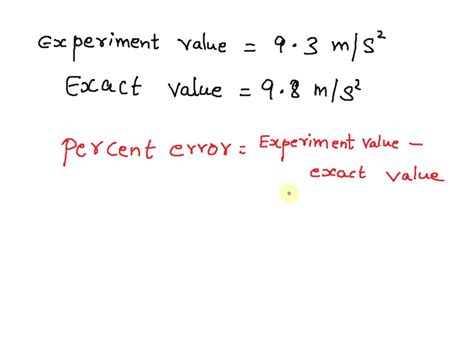 Experiment value = 9.3 m/s²
Exact value = 9.8 m/s²
Percent error = Experiment value –
exact value